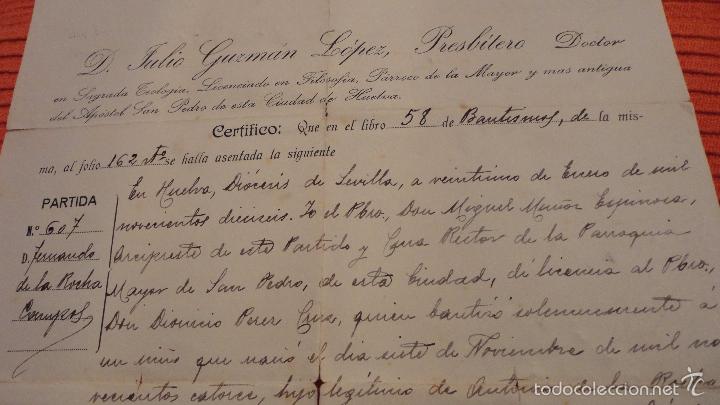 D. Julio Guzmán López, Presbítero Doctor
en Sagrada Teología, Licenciado en Filosofía, Párroco de la Mayor y mas antigua
del Apóstol San Pedro de esta Ciudad de Huelva.
Certifico: Que en el libro 58 de Bautismos, de la mis-
ma, al folio 162 vto se halla asentada la siguiente
PARTIDA
N.º 607
D. Fernando
de la Rocha
Campos
En Huelva, Diócesis de Sevilla, a veintiuno de Enero de mil
novecientos dieciseis. Yo el Pbro, Don Miguel Muñoz Espinosa,
Arcipreste de este Partido y Cura Rector de la Parroquia
Mayor de San Pedro, de esta Ciudad, dí licencia al Pbro,
Don Dionicio Perez Cruz, quien bautizó solemnemente á
un niño que nació el dia siete de Noviembre de mil no
vecientos catorce, hijo legítimo de Antonio de la Rocha
todocoleccion.net